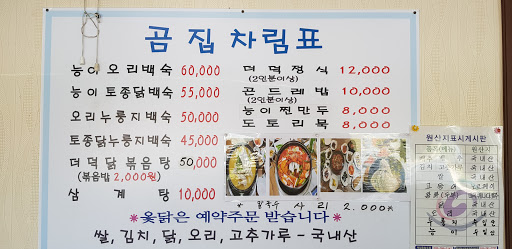 곰 집 차 림 표
능이 오리백숙 60,000
능이 토종닭백숙 55,000
오리누룽지백숙 50,000
토종닭누룽지백숙 45,000
더덕닭볶음탕 50,000
(볶음밥 2,000원)
삼 계 탕 10,000
더 덕 정 식 12,000
(2인분이상)
곤 드 레 밥 10,000
(2인분이상)
능 이 찐 만 두 8,000
도 토 리 묵 8,000
칼국수 사리 2.000
*옻닭은 예약주문 받습니다*
쌀, 김치, 닭, 오리, 고추가루 - 국내산
원산지표시게시판
원산지
국내산
국내산
국내산
국내산